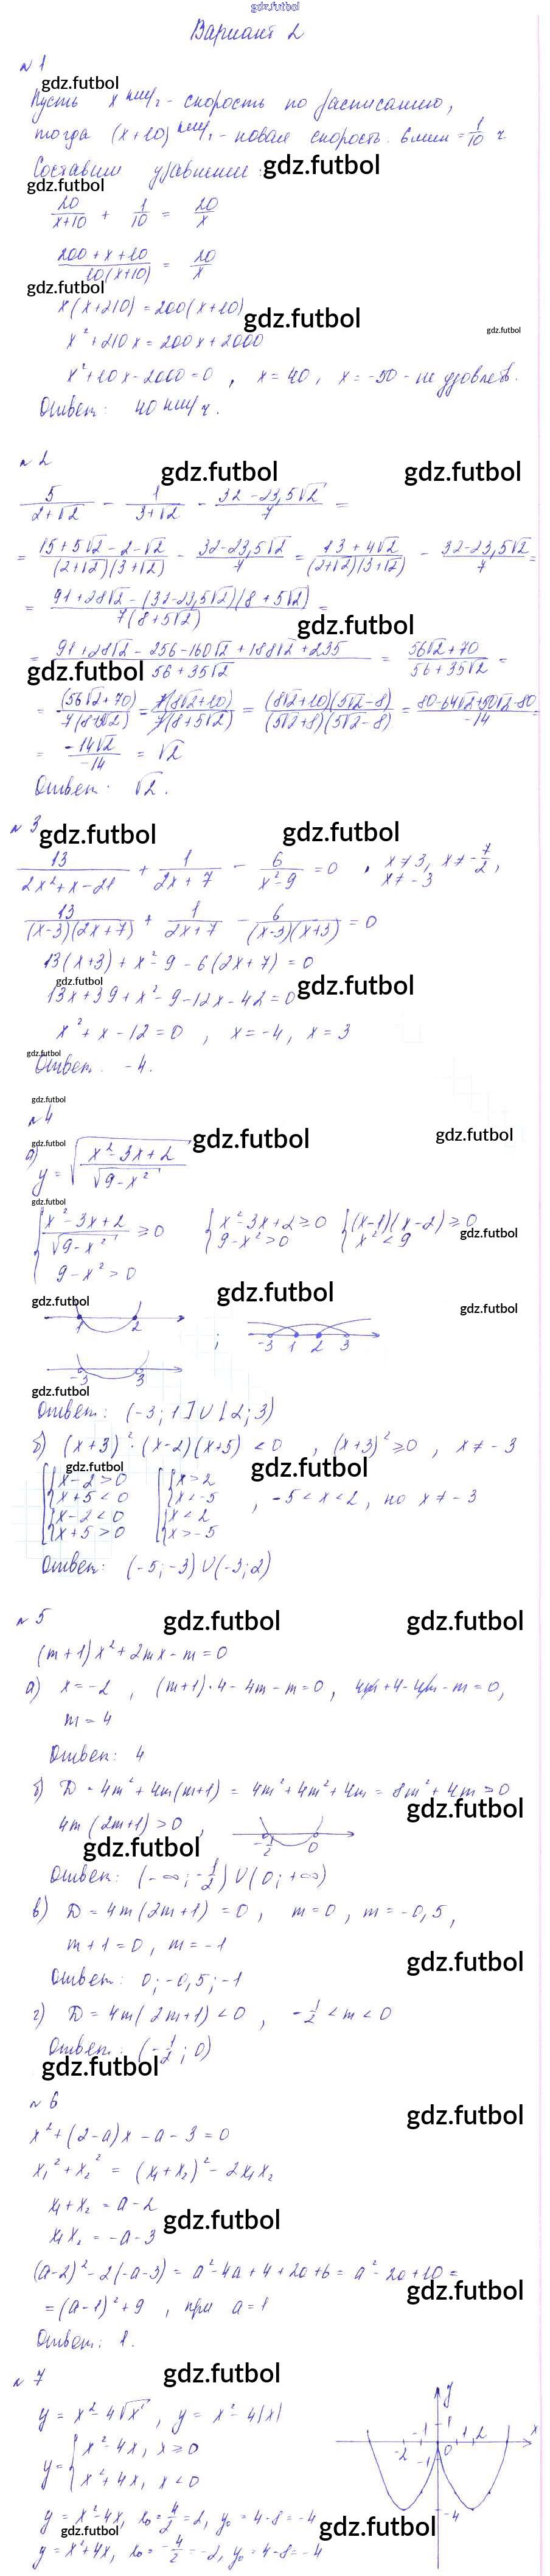 gdz.futbol
Вариант 2
№ 1
gdz.futbol
Пусть x км/ч - скорость по расписанию,
тогда (x+10) км/ч - новая скорость. 6 мин = 1/10 ч
Составим уравнение:
gdz.futbol
gdz.futbol
20/(x+10) + 1/10 = 20/x
(200 + x + 10)/(10(x+10)) = 20/x
gdz.futbol
x(x+210) = 200(x+10)
gdz.futbol
x² + 210x = 200x + 2000
gdz.futbol
x² + 10x - 2000 = 0, x = 40, x = -50 - не удовлет.
Ответ: 40 км/ч.
№ 2
gdz.futbol gdz.futbol
5/(2+√2) - 1/(3+√2) - (32-23,5√2)/7 =
= (15+5√2-2-√2)/((2+√2)(3+√2)) - (32-23,5√2)/7 = (13+4√2)/((2+√2)(3+√2)) - (32-23,5√2)/7 =
= (91+28√2-(32-23,5√2)(8+5√2))/(7(8+5√2)) =
gdz.futbol
= (91+28√2-256-160√2+188√2+235)/(56+35√2) = (56√2+70)/(56+35√2) =
gdz.futbol
= (56√2+70)/(7(8+5√2)) = 7(8√2+10)/(7(8+5√2)) = (8√2+10)(5√2-8)/((5√2+8)(5√2-8)) = (80-64√2+50√2-80)/(-14) =
= (-14√2)/(-14) = √2
Ответ: √2.
№ 3
gdz.futbol gdz.futbol
13/(2x²+x-21) + 1/(2x+7) - 6/(x²-9) = 0, x≠3, x≠-7/2,
x≠-3
13/((x-3)(2x+7)) + 1/(2x+7) - 6/((x-3)(x+3)) = 0
13(x+3) + x²-9 - 6(2x+7) = 0
gdz.futbol gdz.futbol
13x+39+x²-9-12x-42=0
x²+x-12=0, x=-4, x=3
gdz.futbol
Ответ: -4.
gdz.futbol
№ 4
gdz.futbol gdz.futbol gdz.futbol
а) y = √((x²-3x+2)/√(9-x²))
gdz.futbol
{(x²-3x+2)/√(9-x²) ≥ 0 {x²-3x+2≥0 {(x-1)(x-2)≥0
9-x²>0 9-x²>0 x²<9
gdz.futbol
gdz.futbol
gdz.futbol gdz.futbol
1 2 ; -3 1 2 3
-3 3
gdz.futbol
Ответ: (-3; 1]∪[2; 3)
б) (x+3)²·(x-2)(x+5)<0, (x+3)²≥0, x≠-3
gdz.futbol gdz.futbol
[{x-2>0 [{x>2
x+5<0 x<-5 , -5<x<2, но x≠-3
{x-2<0 {x<2
x+5>0 x>-5
Ответ: (-5;-3)∪(-3;2)
№ 5
gdz.futbol gdz.futbol
(m+1)x²+2mx-m=0
а) x=-2, (m+1)·4-4m-m=0, 4m+4-4m-m=0,
m=4
Ответ: 4
б) D = 4m²+4m(m+1) = 4m²+4m²+4m = 8m²+4m>0
gdz.futbol
4m(2m+1)>0, -1/2 0
gdz.futbol
Ответ: (-∞;-1/2)∪(0;+∞)
в) D = 4m(2m+1)=0, m=0, m=-0,5,
m+1=0, m=-1
gdz.futbol
Ответ: 0; -0,5; -1
г) D = 4m(2m+1)<0, -1/2<m<0
Ответ: (-1/2; 0)
gdz.futbol
№ 6
gdz.futbol
x²+(2-a)x-a-3=0
x₁²+x₂² = (x₁+x₂)²-2x₁x₂
x₁+x₂ = a-2
gdz.futbol
x₁x₂ = -a-3
(a-2)²-2(-a-3) = a²-4a+4+2a+6 = a²-2a+10 =
gdz.futbol
= (a-1)²+9, при a=1
Ответ: 1.
№ 7
gdz.futbol
y = x²-4√x², y = x²-4|x|
y = {x²-4x, x≥0
x²+4x, x<0
y x -2 -1 0 1 2 1 -1 -4
y = x²-4x, x₀ = 4/2 = 2, y₀ = 4-8 = -4
gdz.futbol gdz.futbol
y = x²+4x, x₀ = -4/2 = -2, y₀ = 4-8 = -4